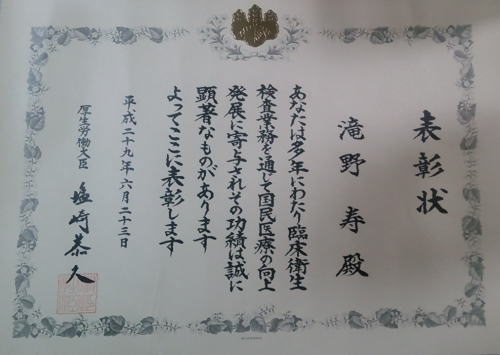 表彰状
滝野 寿 殿
あなたは多年にわたり臨床衛生
検査業務を通して国民医療の向上
発展に寄与されその功績は誠に
顕著なものがあります
よってここに表彰します
平成二十九年六月二十三日
厚生労働大臣 塩崎恭久